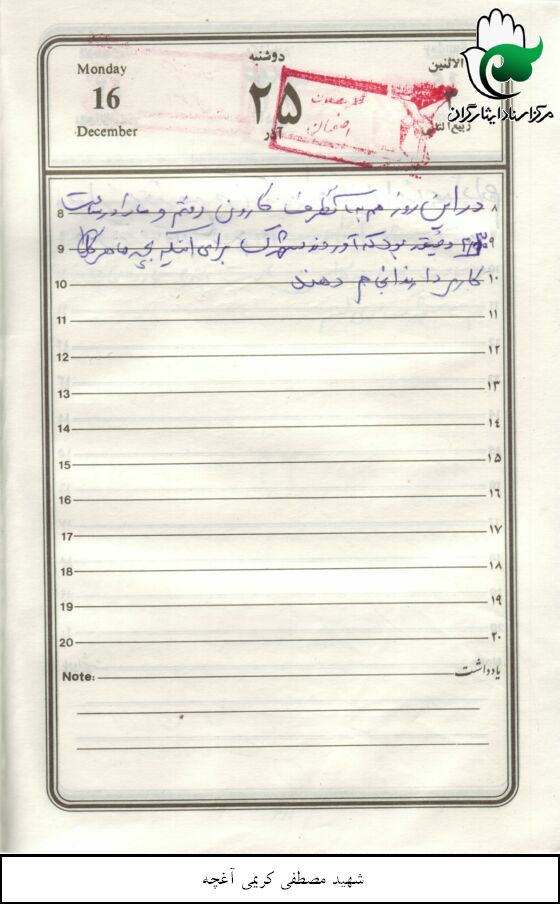 Monday
16
December
دوشنبه
۲۵
آذر
الاثنین
ربیع الثانی
مرکز اسناد ایثارگران
اصفهان
8 در این روز هم به طرف کارون رفتم و ما را در ساعت ۸
9 دقیقه بود که آوردند شهرک برای اینکه بچه ها هر ۹
10 کاری دارند انجام دهند ۱۰
11 ۱۱
12 ۱۲
13 ۱۳
14 ۱۴
15 ۱۵
16 ۱۶
17 ۱۷
18 ۱۸
19 ۱۹
20 ۲۰
Note: یادداشت
شهید مصطفی کریمی آغچه